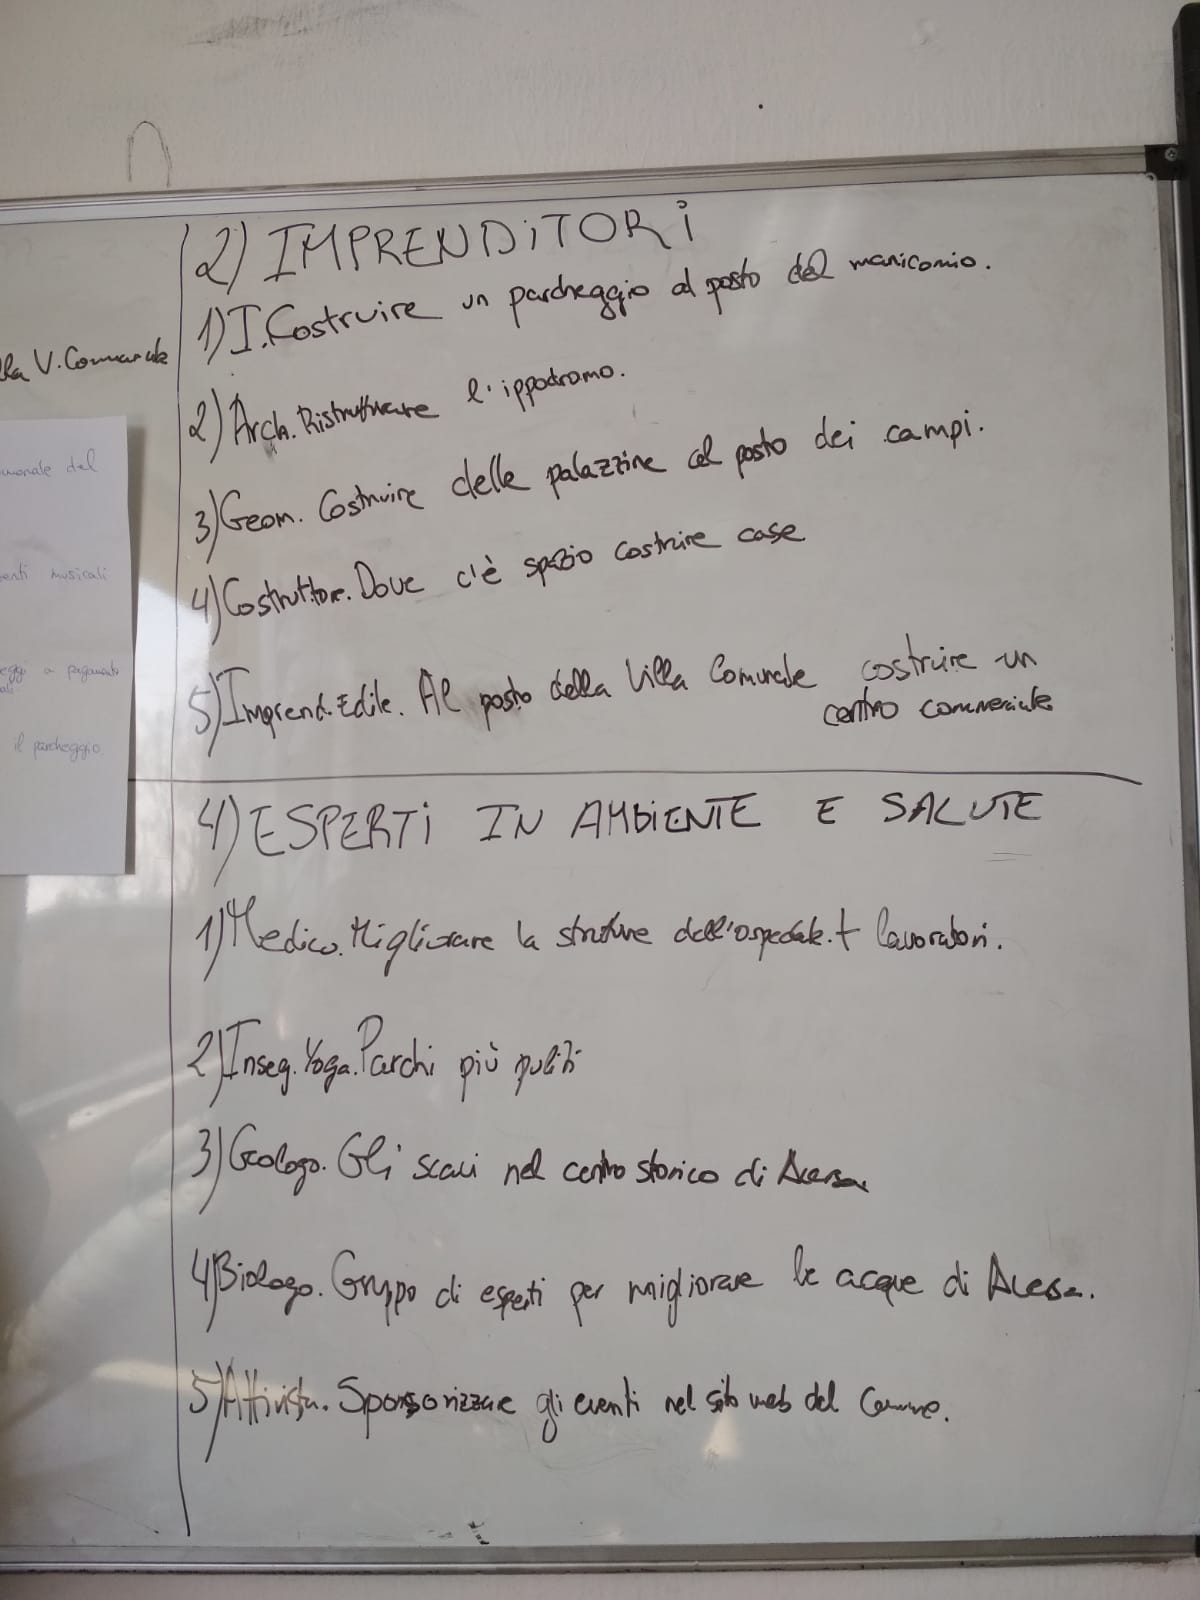 2) IMPRENDITORI
1) I. Costruire un parcheggio al posto del manicomio.
lla V. Comunale
2) Arch. Ristrutturare l'ippodromo.
3) Geom. Costruire delle palazzine al posto dei campi.
4) Costruttore. Dove c'è spazio costruire case
5) Imprend. Edile. Al posto della Villa Comunale costruire un
centro commerciale
del
musicali
a pagamento
il parcheggio
4) ESPERTI IN AMBIENTE E SALUTE
1) Medico. Migliorare la strutture dell'ospedale. + lavoratori.
2) Inseg. Yoga. Parchi più puliti
3) Geologo. Gli scavi nel centro storico di
4) Biologo. Gruppo di esperti per migliorare le acque di
5) Attivista. Sponsorizzare gli eventi nel sito web del Comune.